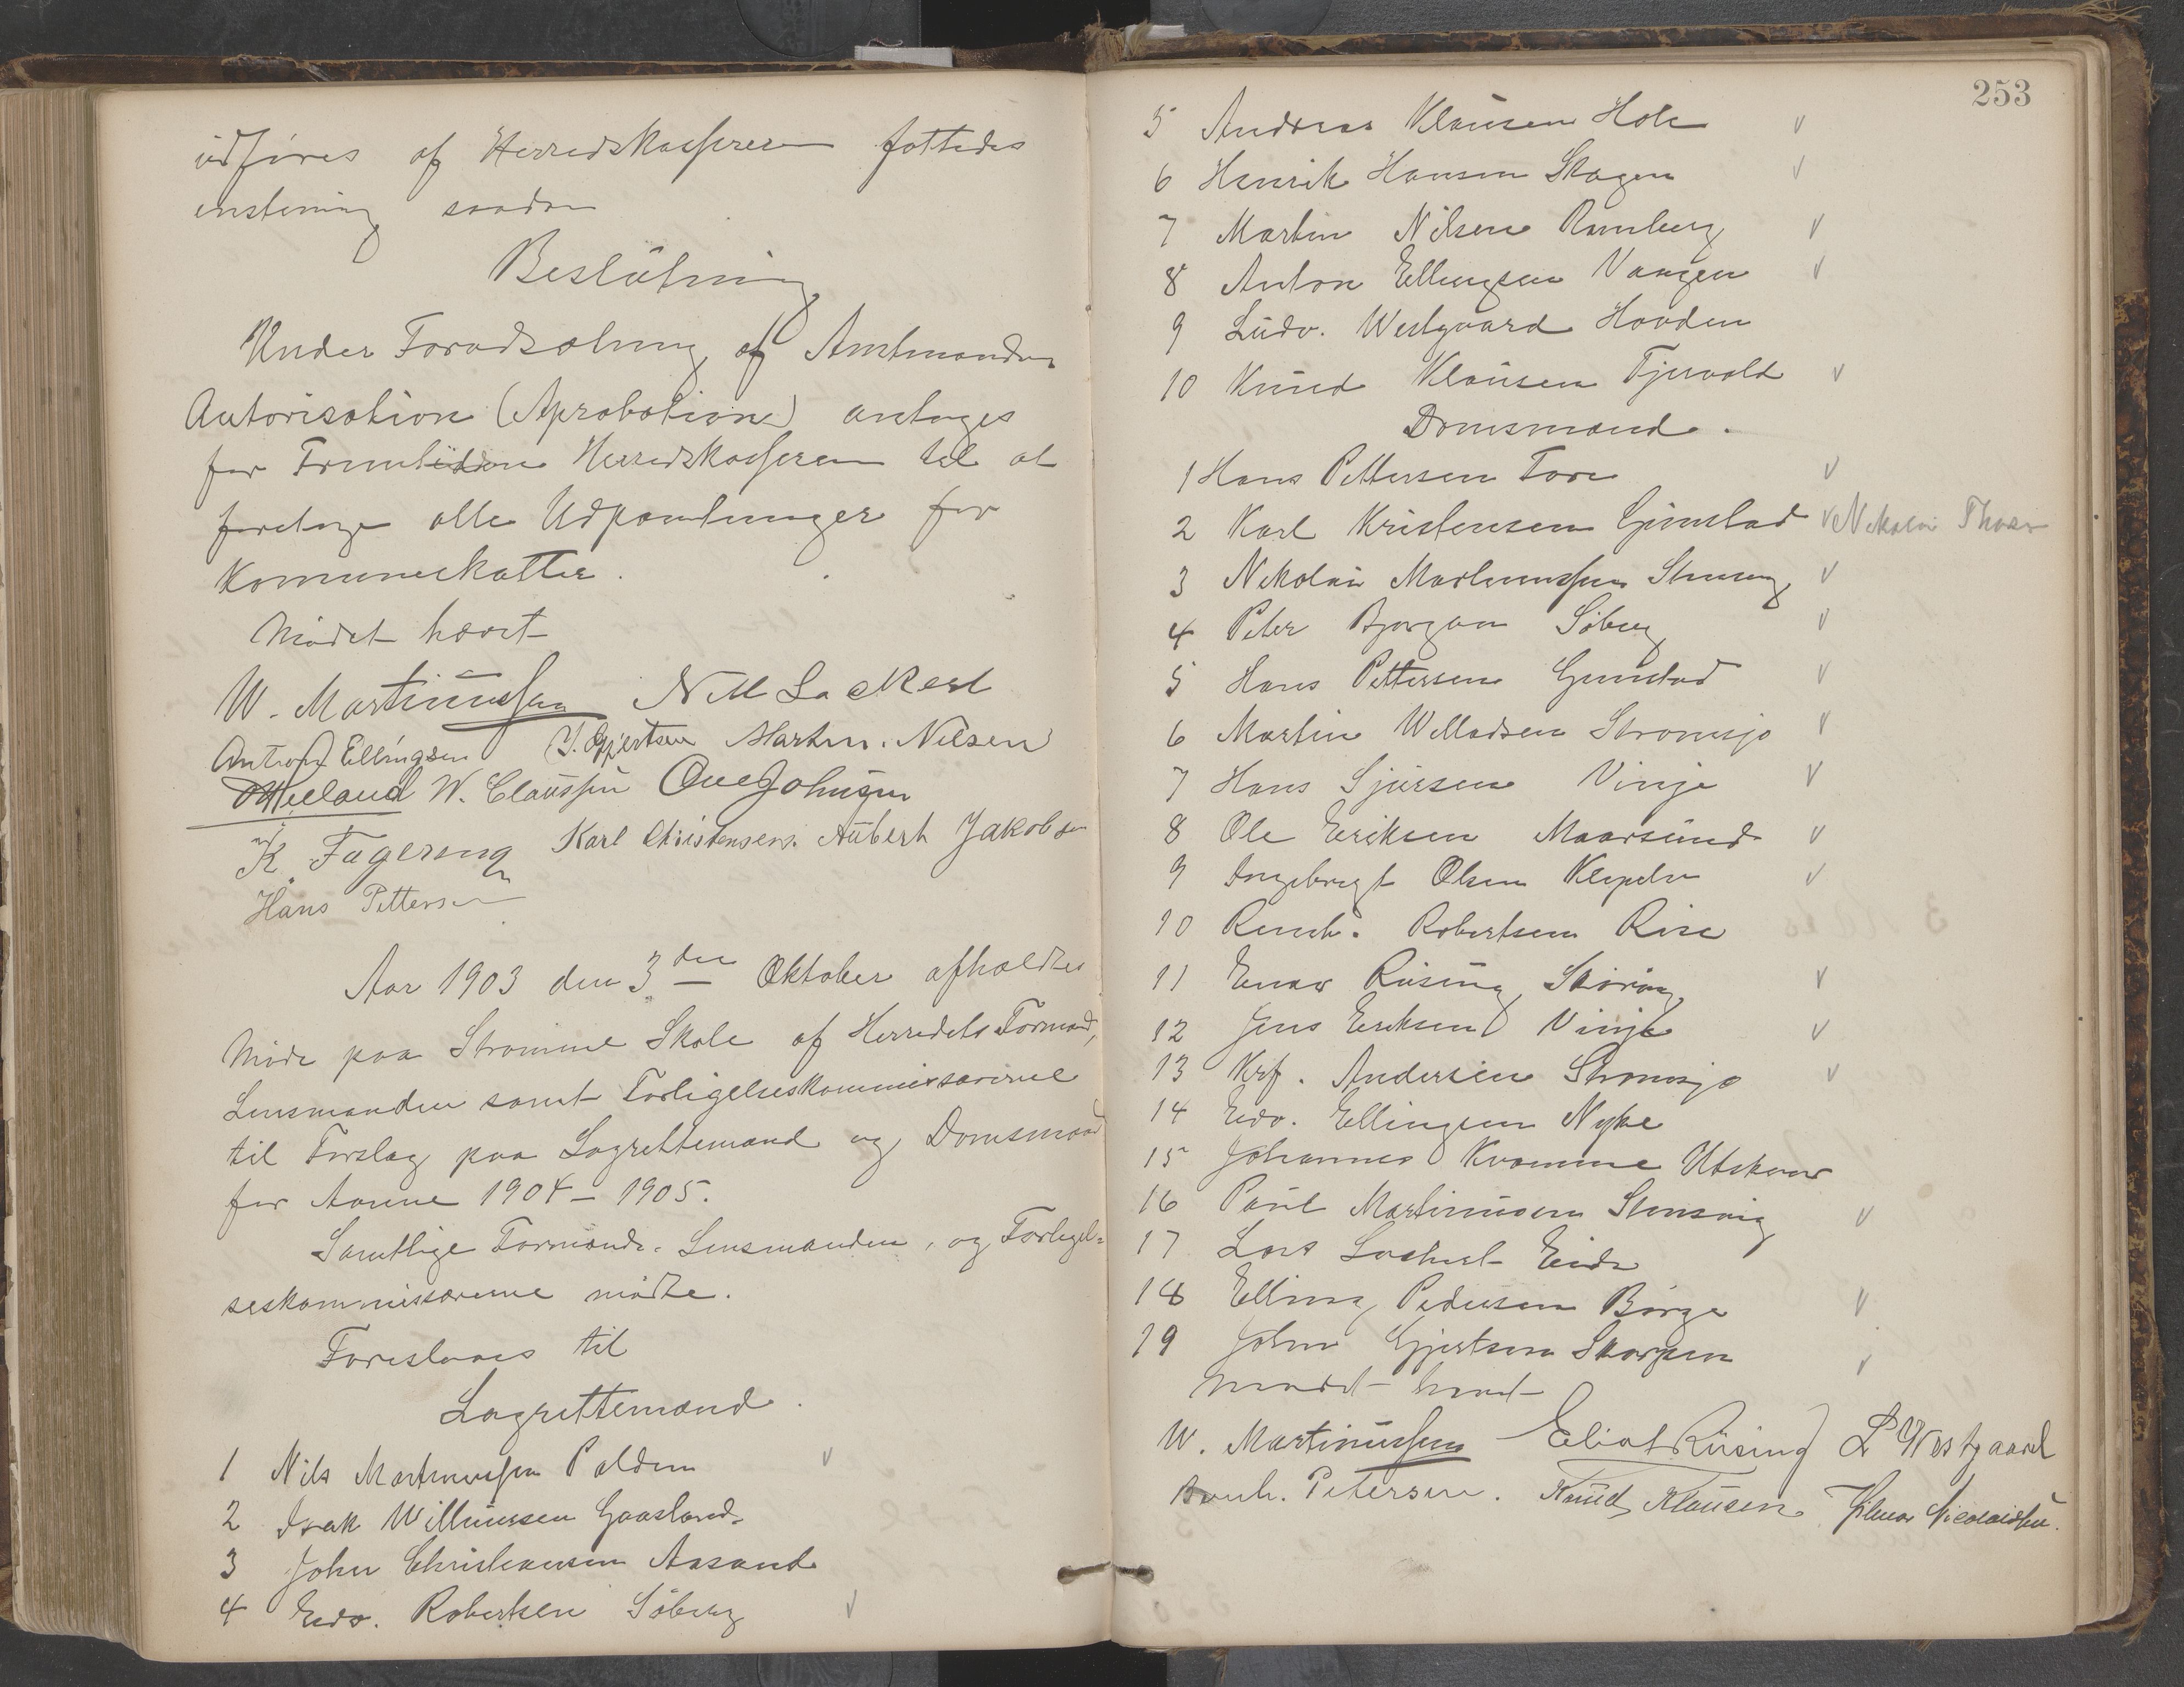 udføres af Herredskasseren fattedes
enstemig saadan
Beslutning
Under Forudsætning af Amtmandens
Autorisation (Aprobation) antages
for Fremtiden Herredskasseren til at
foretage alle Udpantninger for
Kommuneskatter.
Mødet hævet
W. Martinussen N M Lockert
Anton Ellingsen J. Gjertsen Martin. Nilsen
W. Claussen Ove Johnsen
K. Fagereng Karl Christensen. Aubert Jakobsen
Hans Pettersen
Aar 1903 den 3die Oktober afholdtes
Møde paa Stramme Skole af Herredets Formænd,
Lensmanden samt Forligelseskommissærerne
til Forslag paa Lagrettemænd og Domsmænd
for Aarene 1904-1905.
Samtlige Formænd. Lensmanden, og Forligel-
seskommissærerne mødte.
Foresloaes til
Lagrettemænd.
1 Nils Martinussen Polden v
2 Isak Willumsen Gaasland
3 John Christiansen Aasand
4 Edv. Robertsen Søberg v
253
5 Andreas Klausen Hole v
6 Henrik Hansen Skagen v
7 Martin Nilsen Ramberg v
8 Anton Ellingsen Vangen v
9 Ludv. Westgaard Hovden
10 Knud Klausen Tjervold v
Domsmænd.
1 Hans Pettersen Fore v
2 Karl Kristensen Gimstad v Nikolai
3 Nikolai Martinussen v
4 Peter Bjorgan Søberg v
5 Hans Pettersen Gimstad v
6 Martin Willadsen Stromsjo v
7 Hans Sjursen Vinje v
8 Ole Eriksen Maarsund v
9 Ingebrigt Olsen v
10 Robertsen Rise
11 Einar Rüsing Skjøring v
12 Jens Eriksen Vinje v
13 Krf. Andersen Stromsjo v
14 Edv. Ellingsen Nyke
15 Johannes Kvamme Utskaar
16 Paul Martinusen Stensvig v
17 Lars Lockert Eide
18 Elling Pedersen Børge v
19 John Gjertsen Skarpen v
Mødet hævet
W. Martinussen Eliot Rüsing L Westgaard
Bernh. Petersen. Knud Klausen. Hilmar Nicolaissen.